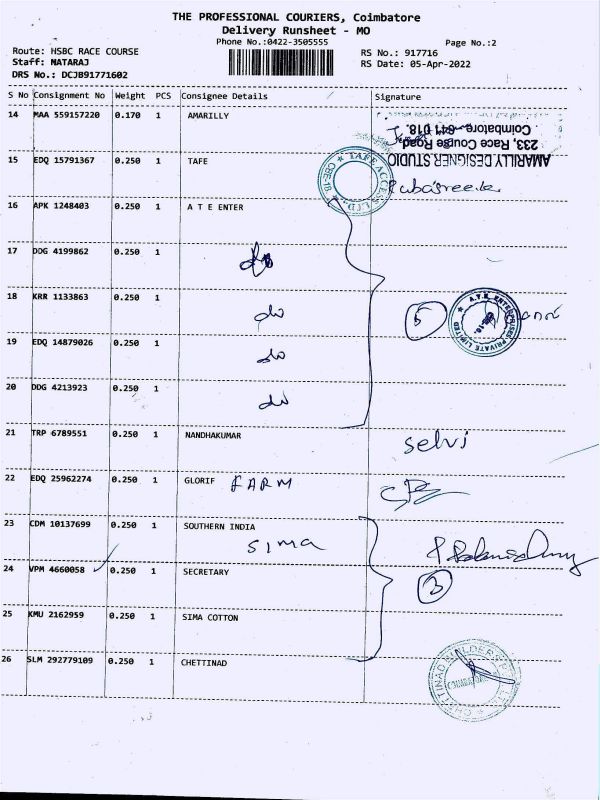 THE PROFESSIONAL COURIERS, Coimbatore
Delivery Runsheet - MO
Phone No.:0422-3505555
Page No.:2
Route: HSBC RACE COURSE
RS No.: 917716
Staff: NATARAJ
RS Date: 05-Apr-2022
DRS No.: DCJB91771602
S No Consignment No Weight PCS Consignee Details Signature
14 MAA 559157220 0.170 1 AMARILLY
AMARILY DESIGNER STUDIO
233, Race Course Road,
Coimbatore - 641 018.
15 EDQ 15791367 0.250 1 TAFE
TAFE ACCESS LTD. CBE-18
16 APK 1248403 0.250 1 A T E ENTER
17 DDG 4199862 0.250 1 do
18 KRR 1133863 0.250 1 do
5
A.T.E. ENTERPRISES PRIVATE LIMITED
19 EDQ 14879026 0.250 1 do
20 DDG 4213923 0.250 1 do
21 TRP 6789551 0.250 1 NANDHAKUMAR selvi
22 EDQ 25962274 0.250 1 GLORIF FARM
23 CDM 10137699 0.250 1 SOUTHERN INDIA
SIMA
24 VPM 4660058 0.250 1 SECRETARY
3
25 KMU 2162959 0.250 1 SIMA COTTON
26 SLM 292779109 0.250 1 CHETTINAD
CHETTINAD BUILDERS